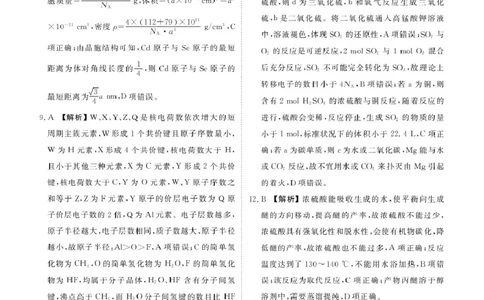 ×10⁻²¹ cm³,密度ρ=4×(112+79)×10²¹/N_A·a³ g/cm³,C
项正确;由晶胞结构可知,Cd 原子与 Se 原子的最短
距离为体对角线长度的1/4,则 Cd 原子与 Se 原子的
最短距离为√3/4 a nm,D 项错误。
9. A 【解析】W、X、Y、Z、Q 是核电荷数依次增大的短
周期主族元素,W 形成 1 个共价键且原子序数最小,
W 为 H 元素,X 形成 4 个共价键,核电荷数大于 H,
且小于其他三种元素,X 为 C 元素,Y 形成 2 个共价
键,核电荷数大于 C,Y 为 O 元素,W、Y 原子序数之
和等于 Z,Z 为 F 元素,Y 原子的价层电子数为 Q 原
子价层电子数的 2 倍,Q 为 Al 元素。电子层数越多,
原子半径越大,电子层数相同,质子数越大,原子半径
越小,故原子半径:Al>O>F,A 项错误;C 的简单氢
化物为 CH₄,O 的简单氢化物为 H₂O,F 的简单氢化
物为 HF,均属于分子晶体,H₂O、HF 含有分子间氢
键,沸点高于 CH₄,而 H₂O 分子间氢键的数目比 HF
硫酸,则 d 为三氧化硫,b 和氧气反应生成三氧化
硫,b 是二氧化硫。将二氧化硫通入高锰酸钾溶液
中,溶液褪色,体现 SO₂ 的还原性,A 项错误;SO₂ 与
O₂ 的反应是可逆反应,2 mol SO₂ 与 1 mol O₂ 混合
后充分反应,SO₂ 不可能完全转化为 SO₃,故理论上
转移电子的数目小于 4N_A,B 项错误;若 a 为铜,则
含有 2 mol H₂SO₄ 的浓硫酸与铜反应,随着反应的
进行,硫酸会变稀,反应停止,生成 SO₂ 的物质的量
小于 1 mol,标准状况下的体积小于 22.4 L,C 项正
确;若 a 为碳单质,则 c 为水或二氧化碳,Mg 能与水
或 CO₂ 反应,故不宜用水或 CO₂ 来扑灭由 Mg 引起
的着火,D 项错误。
12. B 【解析】浓硫酸能吸收生成的水,使平衡向生成
醚的方向移动,提高醚的产率,故浓硫酸不能过少,
浓硫酸具有强氧化性和脱水性,会使有机物碳化,降
低醚的产率,故浓硫酸也不能过多,A 项正确;反应
温度达到了 130～140 ℃,不能用水浴加热,B 项错
误;该反应为取代反应,C 项正确;产物丙醚溶于醇
溶剂中,需要蒸馏提纯,D 项正确。